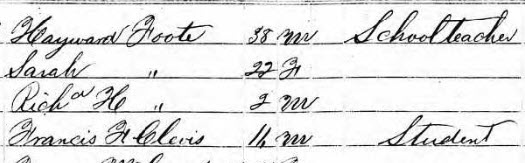 Hayward Foote 38 M Schoolteacher
Sarah " 22 F
Richd H " 2 M
Francis F Clevis 16 M Student